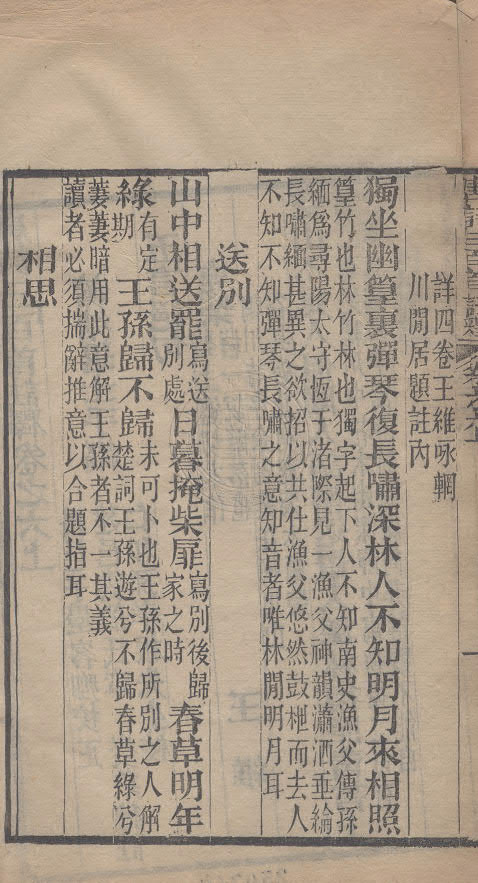 詳四卷王維咏輞
川閒居題註內
獨坐幽篁裏彈琴復長嘯深林人不知明月來相照
篁竹也林竹林也獨字起下人不知南史漁父傳孫
緬爲尋陽太守恆于渚際見一漁父神韻瀟洒垂綸
長嘯緬甚異之欲招以共仕漁父悠然鼓枻而去人
不知不知彈琴長嘯之意知音者唯林閒明月耳
送別
山中相送罷寫送別處日暮掩柴扉寫別後歸家之時春草明年
綠有定期王孫歸不歸未可卜也王孫作所別之人解楚詞王孫遊兮不歸春草綠兮
萋萋暗用此意解王孫者不一其義
讀者必須揣辭推意以合題指耳
相思